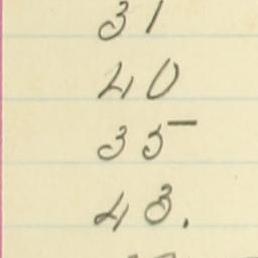 31
40
35
43.